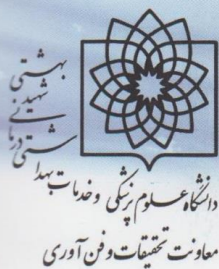 دانشگاه علوم پزشکی و خدمات بهدا
شتی درمانی شهید بهشتی
معاونت تحقیقات و فن آوری